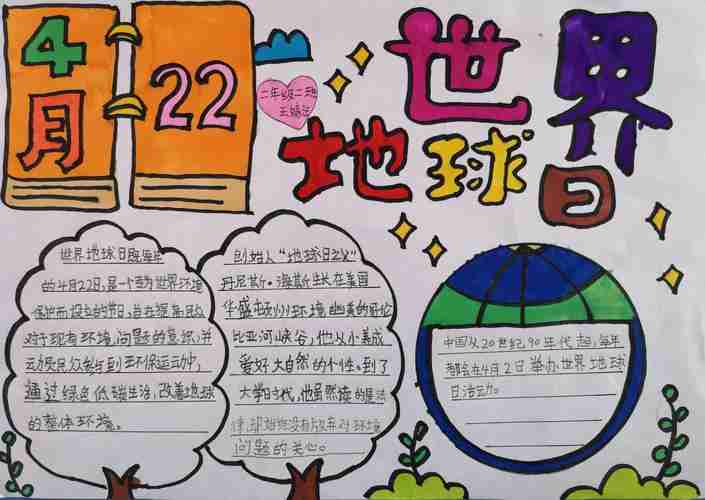 4月
22
二年级二班
世界
地球日
世界地球日即每年
的4月22日,是一个专为世界环境
保护而设立的节日,旨在提高民众
对于现有环境问题的意识,并
动员民众参与到环保运动中,
通过绿色低碳生活,改善地球
的整体环境。
创始人“地球日之父”
丹尼斯·海斯生长在美国
华盛顿州环境幽美的哥伦
比亚河峡谷,他从小养成
爱好大自然的个性。到了
大学时代,他虽然读的是法
律,却始终没有放弃对环境
问题的关心。
中国从20世纪90年代起,每年
都会在4月2日举办世界地球
日活动。